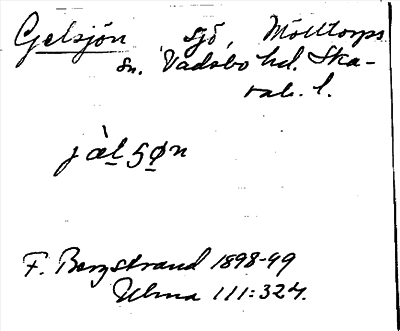 Gelsjön sjö, Mölltorps
sn. Vadsbo hd. Ska-
rab. l.
jàlʒøn
F. Bergstrand 1898-99
Ulma 111:324.